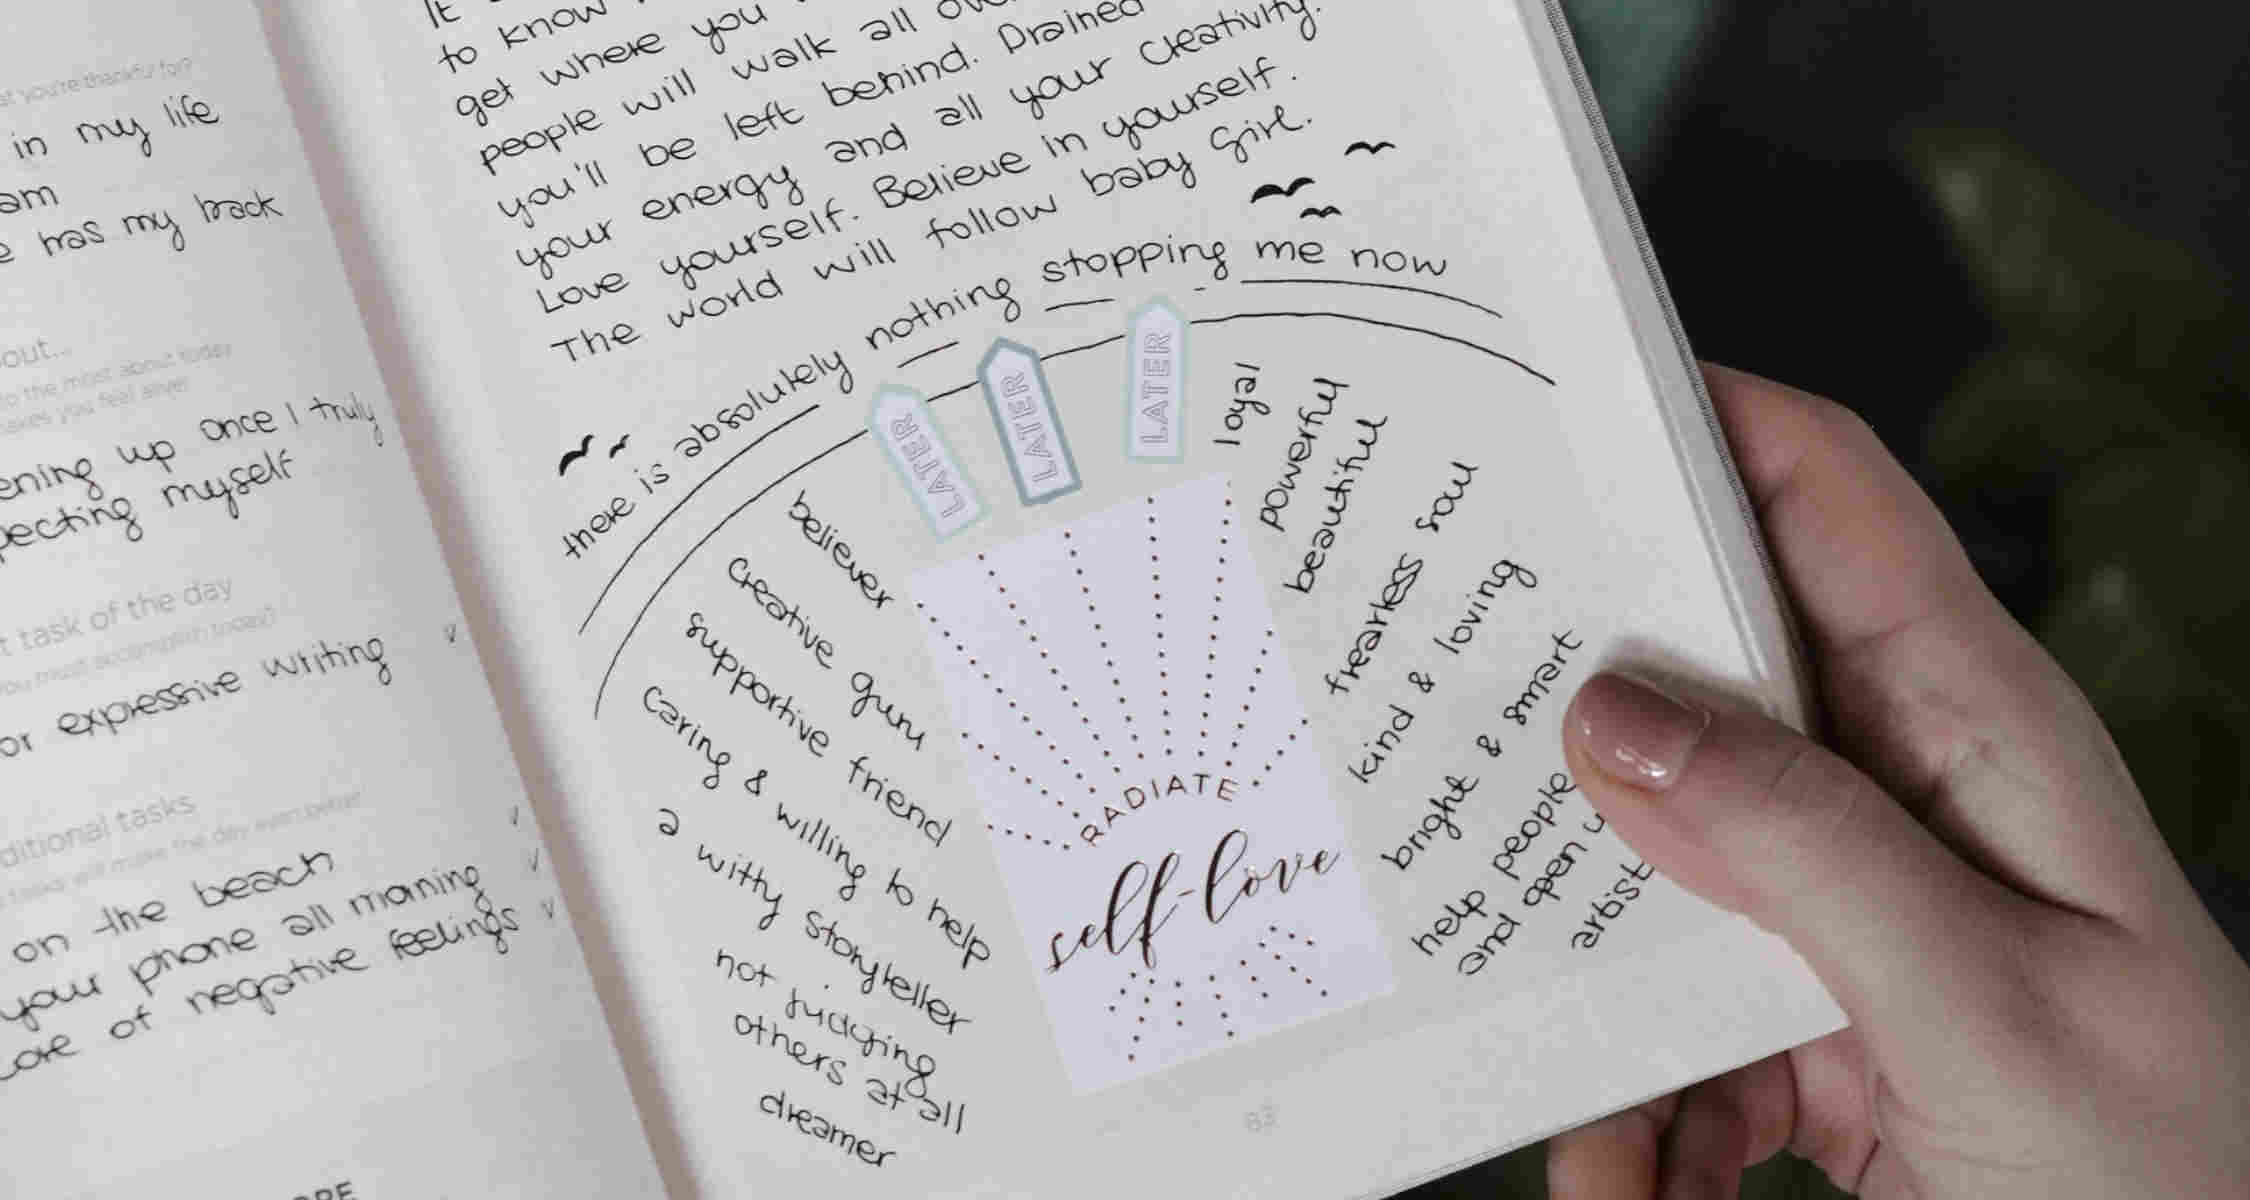 at you're thankful for?
in my life
am
e has my back
out...
to the most about today
akes you feel alive!
ening up once I truly
pecting myself
t task of the day
you must accomplish today?
or expressive writing
ditional tasks
tasks will make the day even better
on the beach
your phone all morning
of negative feelings
ORE
It
to know
get where you
people will walk all ove
you'll be left behind. Drained
your energy and all your creativity.
Love yourself. Believe in yourself.
The world will follow baby girl.
there is absolutely nothing stopping me now
LATER
LATER
LATER
believer
creative guru
supportive friend
caring & willing to help
a witty storyteller
not judging
others at all
dreamer
RADIATE
self-love
loyal
powerful
beautiful
fearless soul
kind & loving
bright & smart
help people
and open u
artist
83